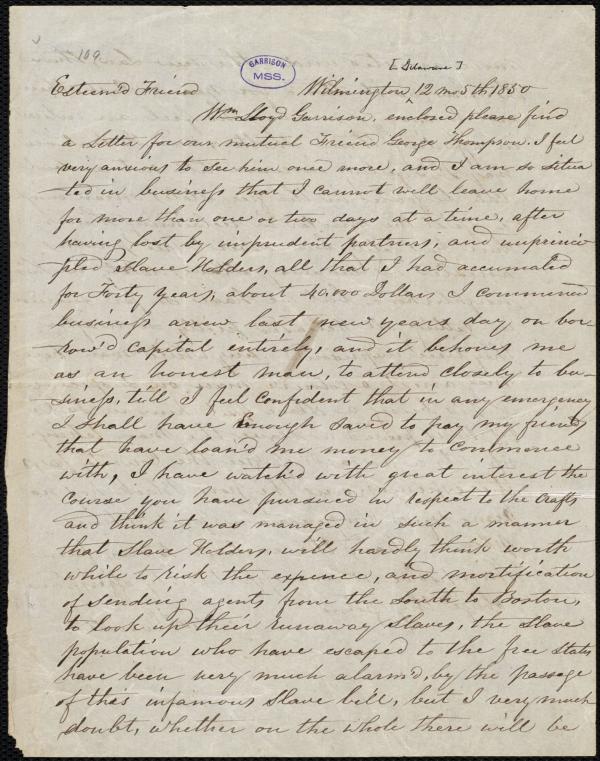 109
GARRISON
MSS.
[Delaware]
Esteem'd Friend Wilmington 12 mo 5th 1850
Wm Lloyd Garrison, enclosed please find
a Letter for our mutual Friend George Thompson. I feel
very anxious to see him once more, and I am so situa
ted in business that I cannot well leave home
for more than one or two days at a time, after
having lost by imprudent partners, and unprinci
pled Slave Holders, all that I had accumaled
for Forty years, about 40,000 Dollars I commenced
business anew last new years day on bor-
row'd capital entirely, and it behoves me
as an honest man, to attend closely to bu-
siness, till I feel confident that in any emergency
I shall have Enough saved to pay my friends
that have loan'd me money to commence
with, I have watch'd with great interest the
course you have pursued in respect to the Crafts
and think it was managed in such a manner
that Slave Holders, will hardly think worth
while to risk the expence, and mortification
of sending agents from the South to Boston,
to look up their runaway Slaves, the Slave
population who have escaped to the free States
have been very much alarm'd, by the passage
of this infamous Slave bill, but I very much
doubt, whether on the whole there will be